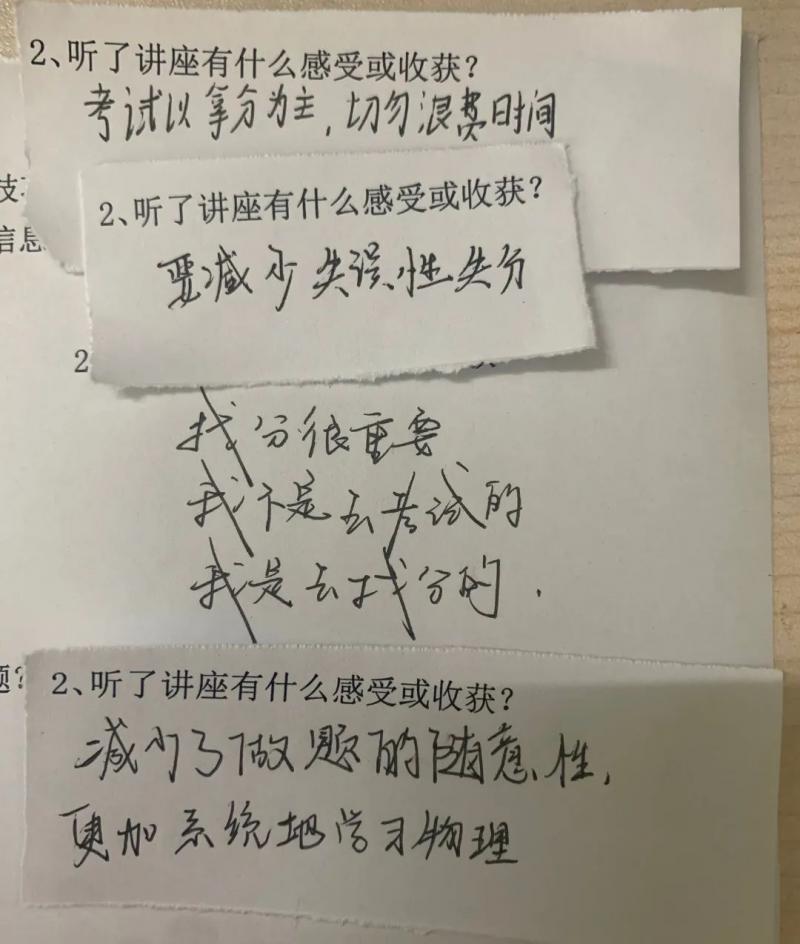 2、听了讲座有什么感受或收获？
考试以拿分为主，切勿浪费时间
信息
2、听了讲座有什么感受或收获？
要减少失误性失分
2
找分很重要
我不是去考试的
我是去找分的．
题？
2、听了讲座有什么感受或收获？
减少了做题的随意性，
更加系统地学习物理